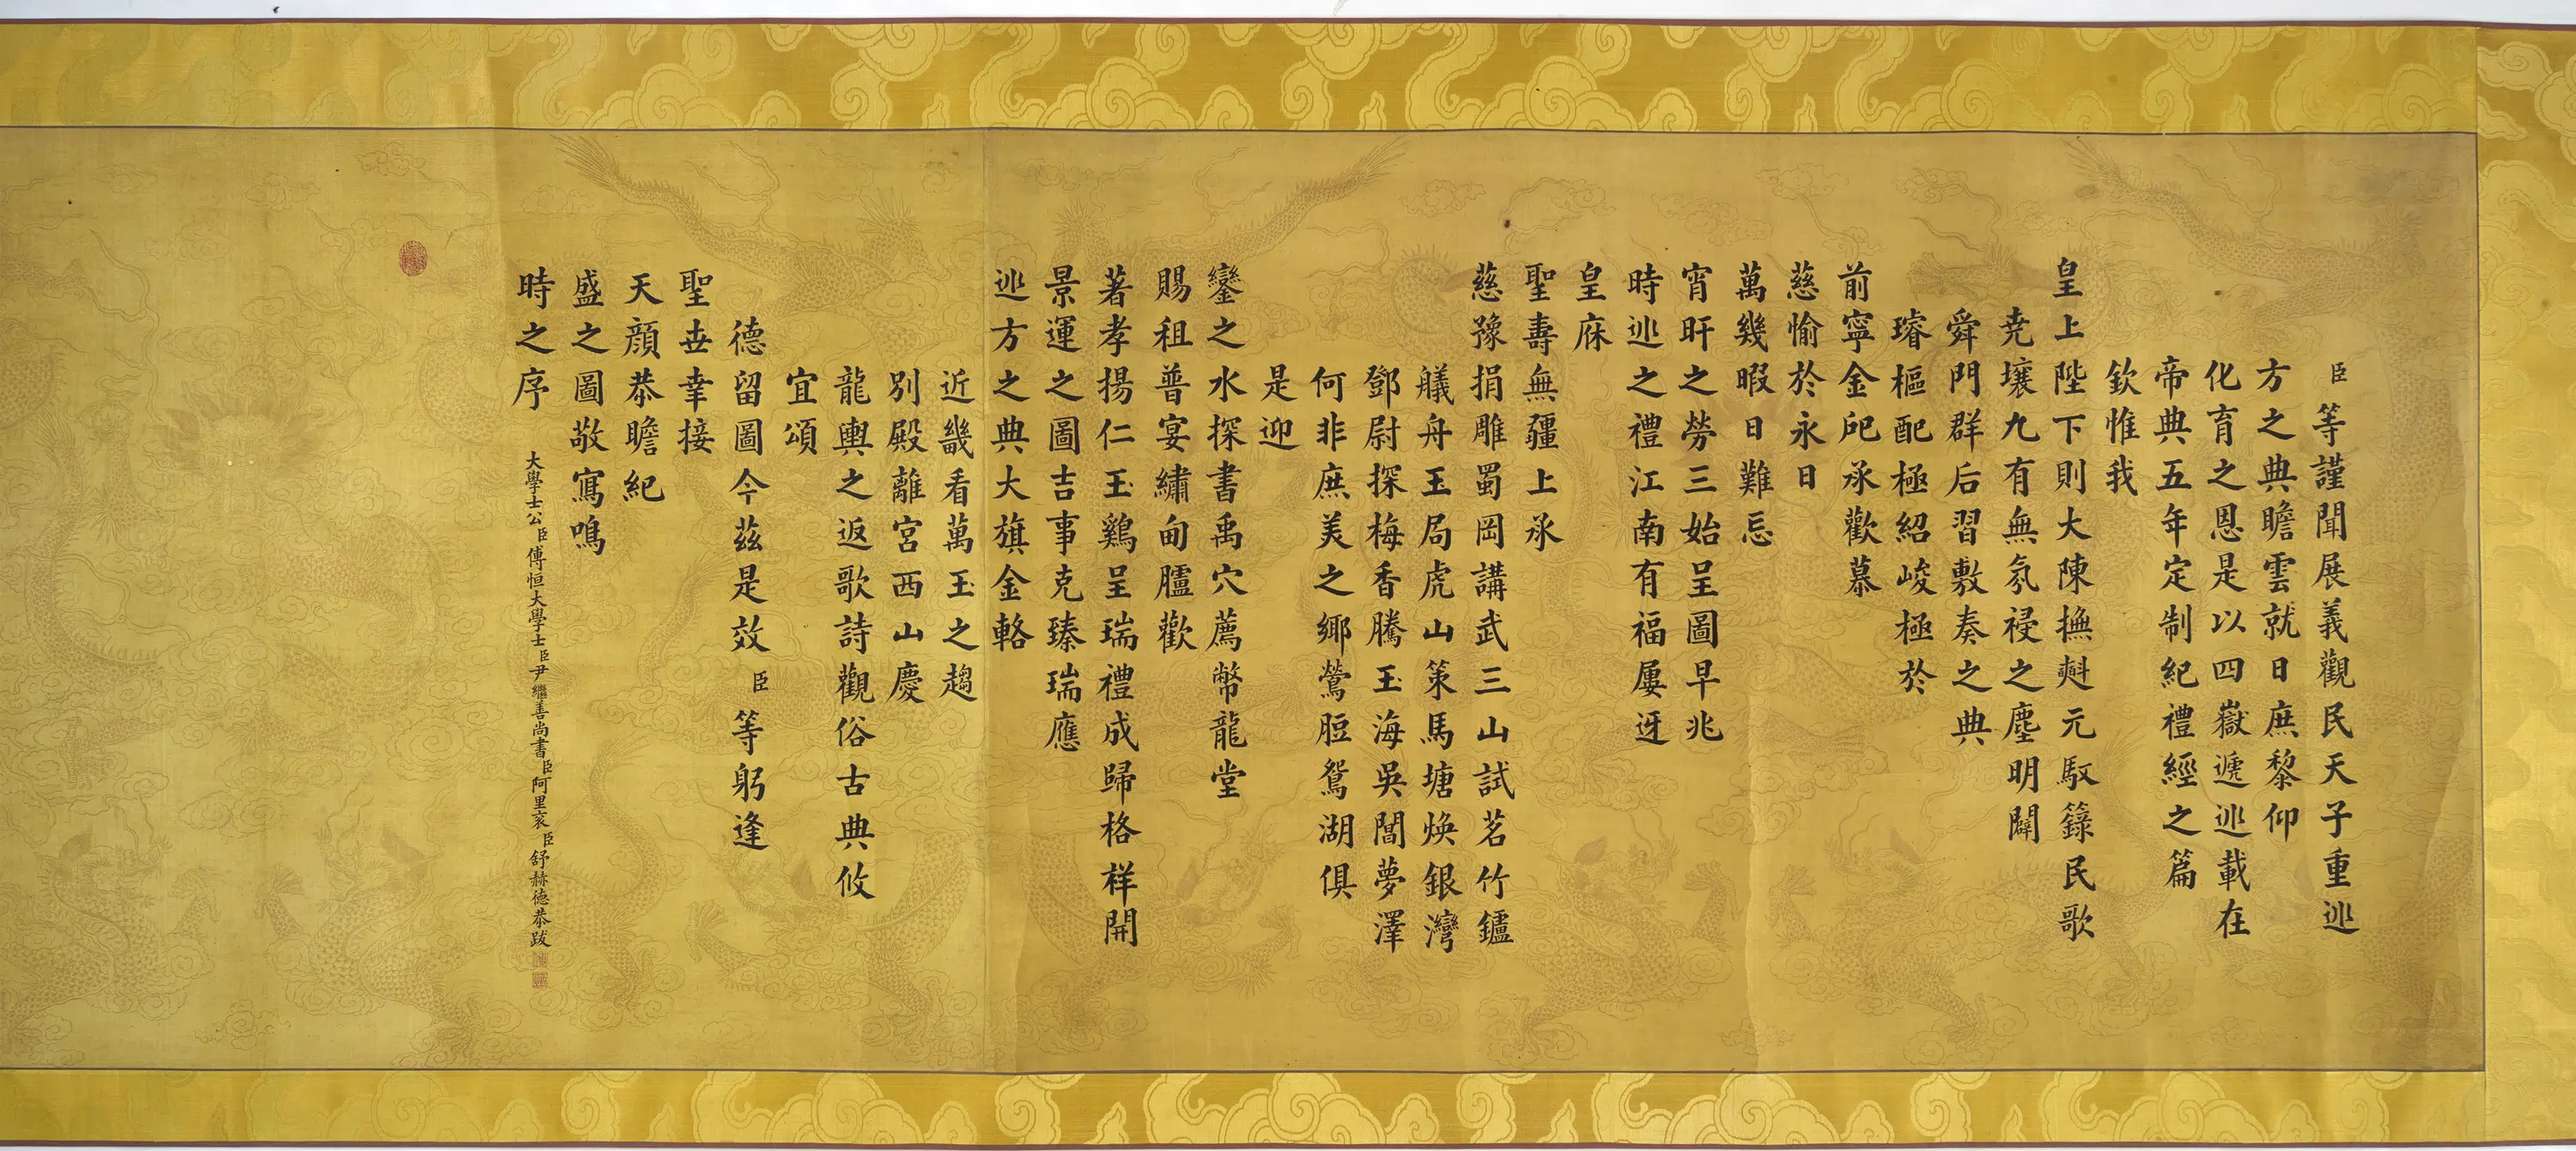 臣等謹聞展義觀民天子重巡
方之典瞻雲就日庶黎仰
化育之恩是以四嶽遞巡載在
帝典五年定制紀禮經之篇
欽惟我
皇上陛下則大陳撫㪺元馭籙民歌
堯壤九有無氛祲之塵明闢
舜門群后習敷奏之典
璿樞配極紹峻極於
前寧金戺承歡慕
慈愉於永日
萬幾暇日難忘
宵旰之勞三始呈圖早兆
時巡之禮江南有福屢迓
皇庥
聖壽無疆上承
慈豫捐雕蜀岡講武三山試茗竹鑪
艤舟玉局虎山策馬塘煥銀灣
鄧尉探梅香騰玉海吳閶夢澤
何非庶美之鄉鶯脰鴛湖俱
是迎
鑾之水探書禹穴薦幣龍堂
賜租普宴繡甸臚歡
著孝揚仁玉鷄呈瑞禮成歸格祥開
景運之圖吉事克臻瑞應
巡方之典大旗金輅
近畿看萬玉之趨
別殿離宮西山慶
龍輿之返歌詩觀俗古典攸
宜頌
德留圖今茲是效臣等躬逢
聖世幸接
天顏恭瞻紀
盛之圖敬寫鳴
時之序
大學士公臣傅恒大學士臣尹繼善尚書臣阿里袞臣舒赫德恭跋